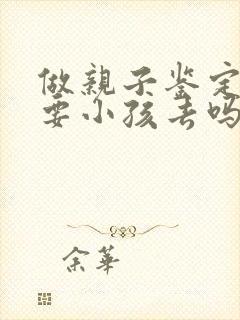 做親子鉴定
要小孩去吗
余華